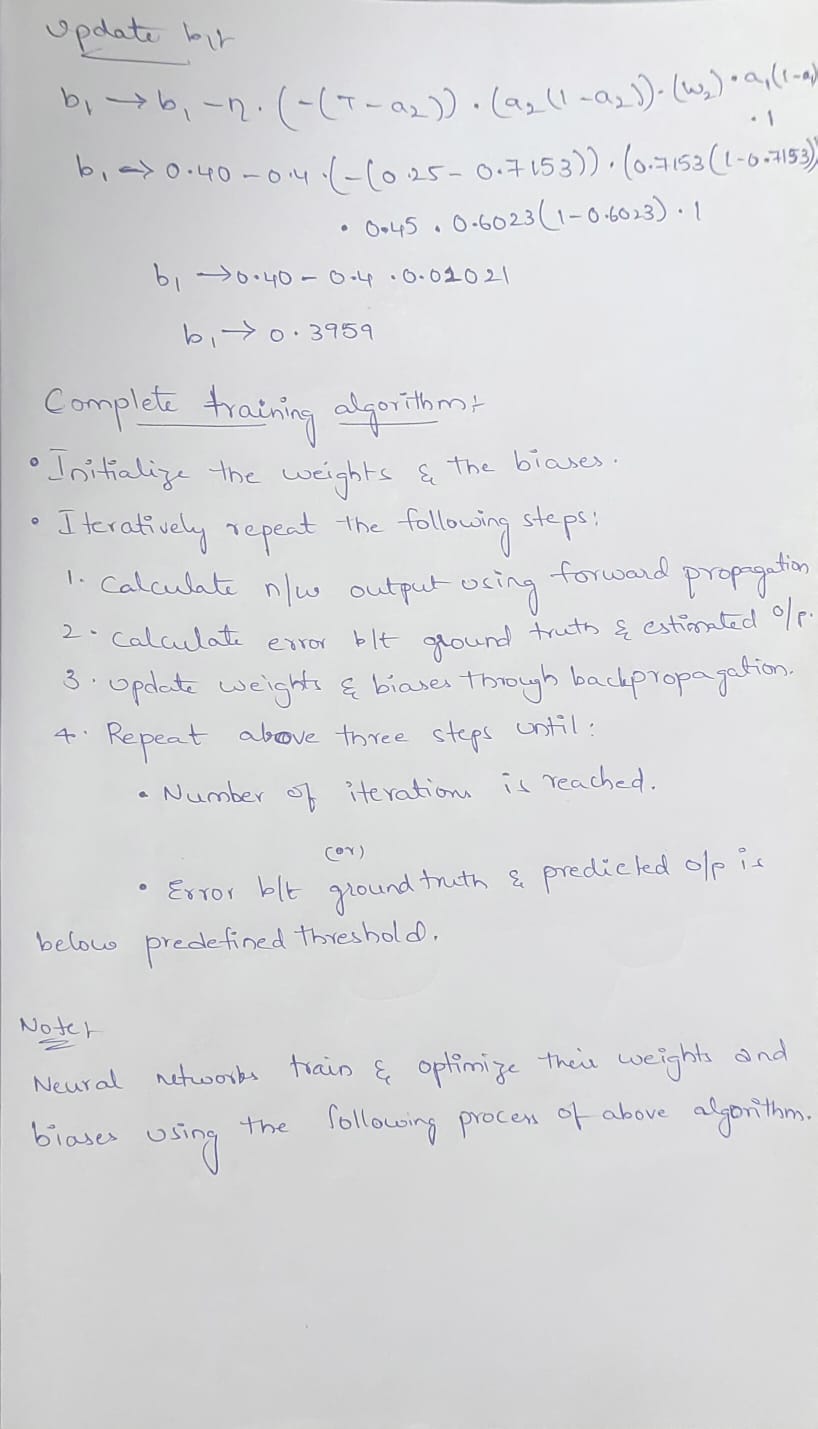 Update b₁:-
b₁ → b₁ - η. (-(T - a₂)) • (a₂(1 - a₂)). (w₂) • a₁(1-a₁)
. 1
b₁ → 0.40 - 0.4 . (-(0.25 - 0.7153)) . (0.7153(1-0.7153))
• 0.45 . 0.6023(1 - 0.6023) . 1
b₁ → 0.40 - 0.4 . 0.01021
b₁ → 0.3959
Complete training algorithm:-
• Initialize the weights & the biases.
• Iteratively repeat the following steps:
1. Calculate n/w output using forward propagation
2. calculate error b/t ground truth & estimated o/p.
3. update weights & biases through backpropagation.
4. Repeat above three steps until:
• Number of iterations is reached.
(or)
• Error b/t ground truth & predicted o/p is
below predefined threshold.
Note:-
Neural networks train & optimize their weights and
biases using the following process of above algorithm.